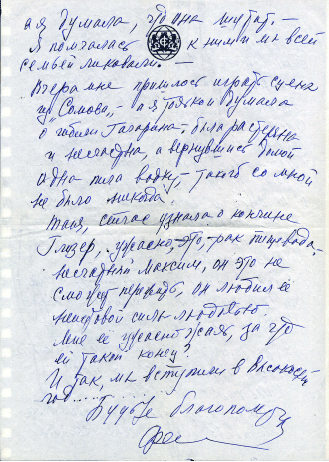 а я думала, что она шутит. —
Я помчалась к ним и мы всей
семьей ликовали. —
Вчера мне пришлось играть сцена
из "Сомова", — а я только думала
о гибели Гагарина — была растеряна
и несчастна, а вернувшись домой
одна пила водку, — такого со мной
не было никогда.
Таня, сейчас узнала о кончине
Глизер, ужасно, это, рак пищевода,
несчастный Максим, он это не
сможет пережить, он любил её
неистовой силы любовью.
Мне её ужасно жаль, за что
ей такой конец?
И так, мы вступили в високосный
год........
Будьте благополучны